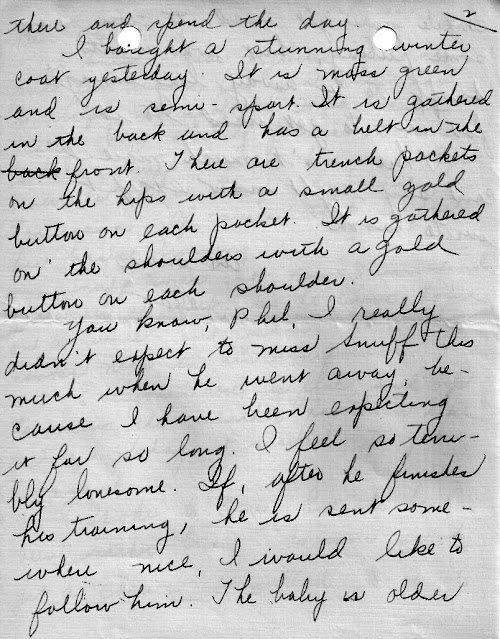 2
there and spend the day.
I bought a stunning winter
coat yesterday. It is moss green
and is semi-sport. It is gathered
in the back and has a belt in the
back front. There are trench pockets
on the hips with a small gold
button on each pocket. It is gathered
on the shoulders with a gold
button on each shoulder.
You know, Phil, I really
didn't expect to miss Snuff this
much when he went away, be-
cause I have been expecting
it for so long. I feel so terri-
bly lonesome. If, after he finishes
his training, he is sent some-
where nice, I would like to
follow him. The baby is older